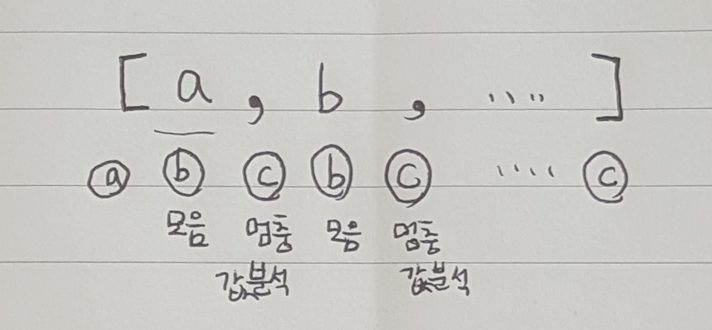 [ a , b , .... ]
ⓐ ⓑ ⓒ ⓑ ⓒ .... ⓒ
모음 멈춤 모음 멈춤
값분석 값분석